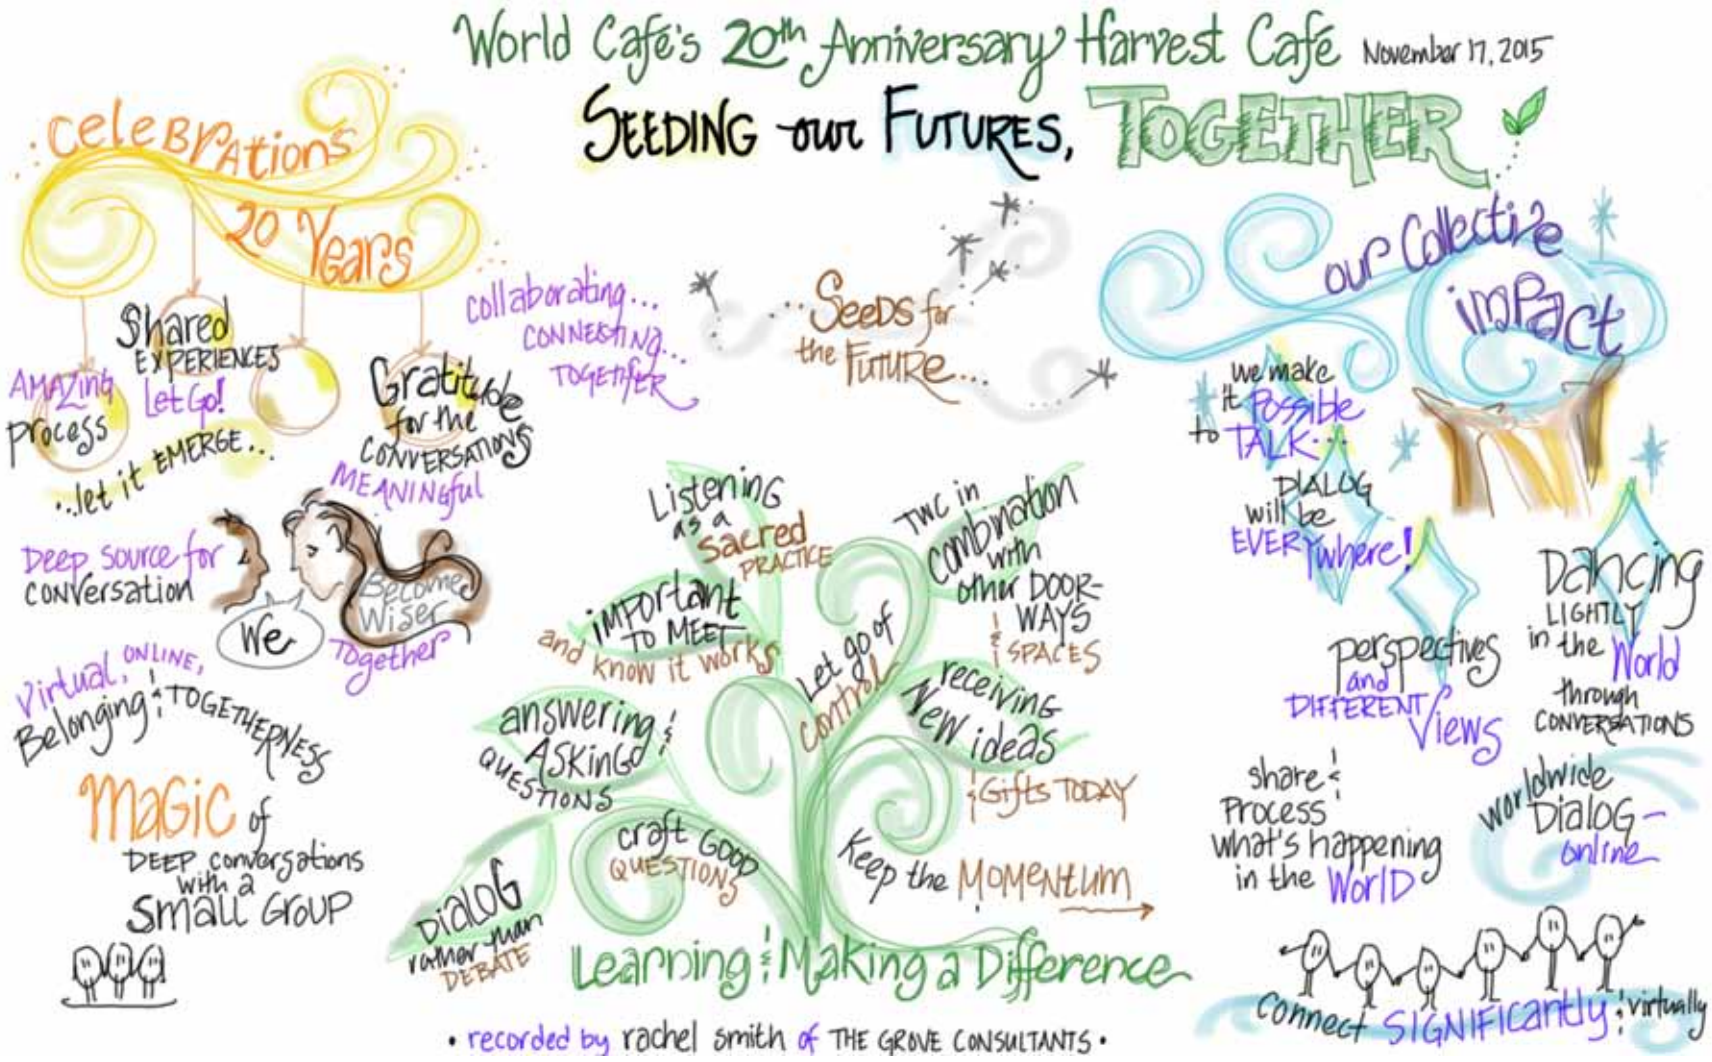 World Café's 20th Anniversary Harvest Café November 17, 2015
SEEDING our FUTURES, TOGETHER
Celebrations
20 Years
AMAZING
process
Shared
EXPERIENCES
Let Go!
...let it EMERGE...
Gratitude
for the
CONVERSATIONS
MEANINGful
collaborating...
CONNECTING...
TOGETHER
Deep source for
conversation
We
Become
Wiser
Together
Virtual, ONLINE,
Belonging & TOGETHERNESS
Magic of
DEEP conversations
with a
Small Group
..Seeds for
the Future...
Listening
as a
sacred
PRACTICE
important
TO MEET
and know it works
answering &
ASKING
QUESTIONS
craft GOOD
QUESTIONS
DIALOG
rather than
DEBATE
Let go of
control
TWC in
combination
with
other DOOR-
WAYS
& SPACES
receiving
New ideas
& Gifts TODAY
Keep the MOMENTUM
Learning & Making a Difference
our Collective
impact
we make
it Possible
to TALK...
DIALOG
will be
EVERYwhere!
perspectives
and
DIFFERENT Views
Dancing
LIGHTLY
in the World
through
CONVERSATIONS
share &
Process
what's happening
in the World
worldwide
Dialog-
online
connect SIGNIFICantly & virtually
• recorded by rachel smith of THE GROVE CONSULTANTS •